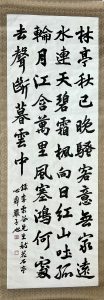 林亭秋已晚騷客意無窮遠
水連天碧霜楓向日紅山吐孤
輪月江含萬里風塞鴻何處
去聲斷暮雲中